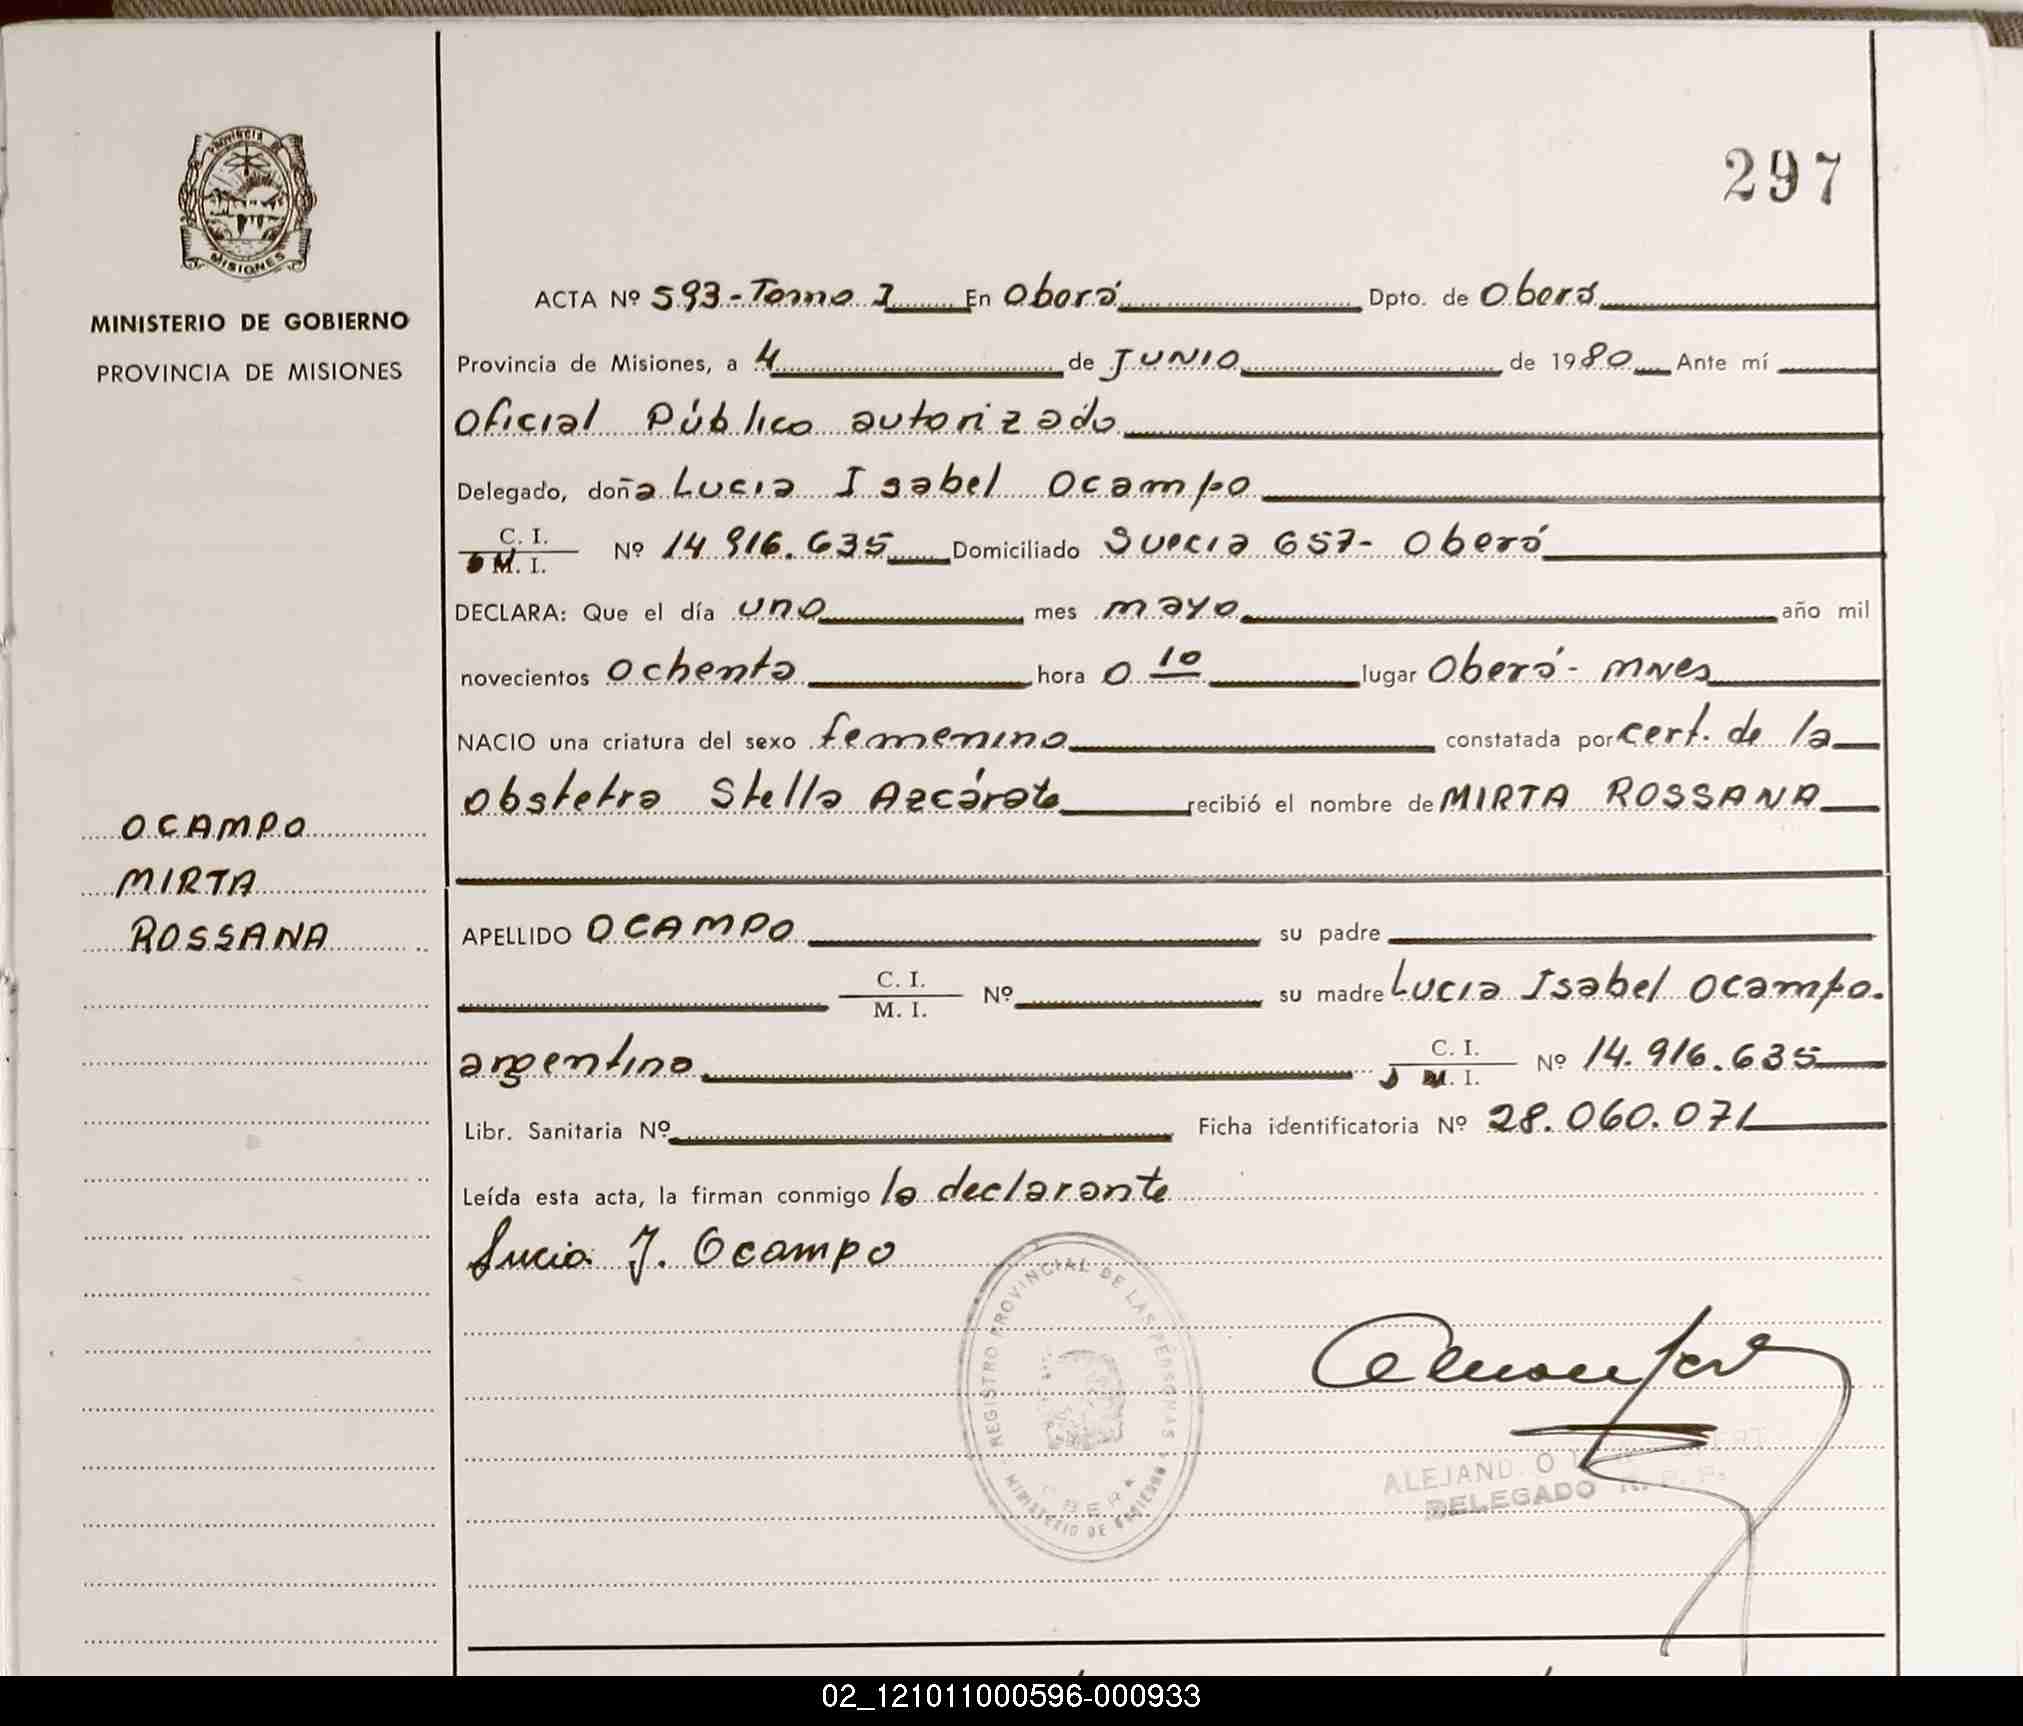 297
PROVINCIA
MISIONES
MINISTERIO DE GOBIERNO
PROVINCIA DE MISIONES
OCAMPO
MIRTA
ROSSANA
ACTA Nº 593-Tomo I En Oberá Dpto. de Oberá
Provincia de Misiones, a 4 de JUNIO de 1980 Ante mí
Oficial Público autorizado
Delegado, doña Lucia Isabel Ocampo
C. I.
M. I. Nº 14.916.635 Domiciliado Suecia 657- Oberá
DECLARA: Que el día uno mes mayo año mil
novecientos ochenta hora 0 10 lugar Oberá - mnes
NACIO una criatura del sexo femenino constatada por cert. de la
obstetra Stella Azcárate recibió el nombre de MIRTA ROSSANA
APELLIDO OCAMPO su padre
C. I.
M. I. Nº su madre Lucia Isabel Ocampo.
argentina C. I.
M. I. Nº 14.916.635
Libr. Sanitaria Nº Ficha identificatoria Nº 28.060.071
Leída esta acta, la firman conmigo la declarante
Lucia I. Ocampo
REGISTRO PROVINCIAL DE LAS PERSONAS
MINISTERIO DE GOBIERNO
DELEGADO R. P. P.
02_121011000596-000933